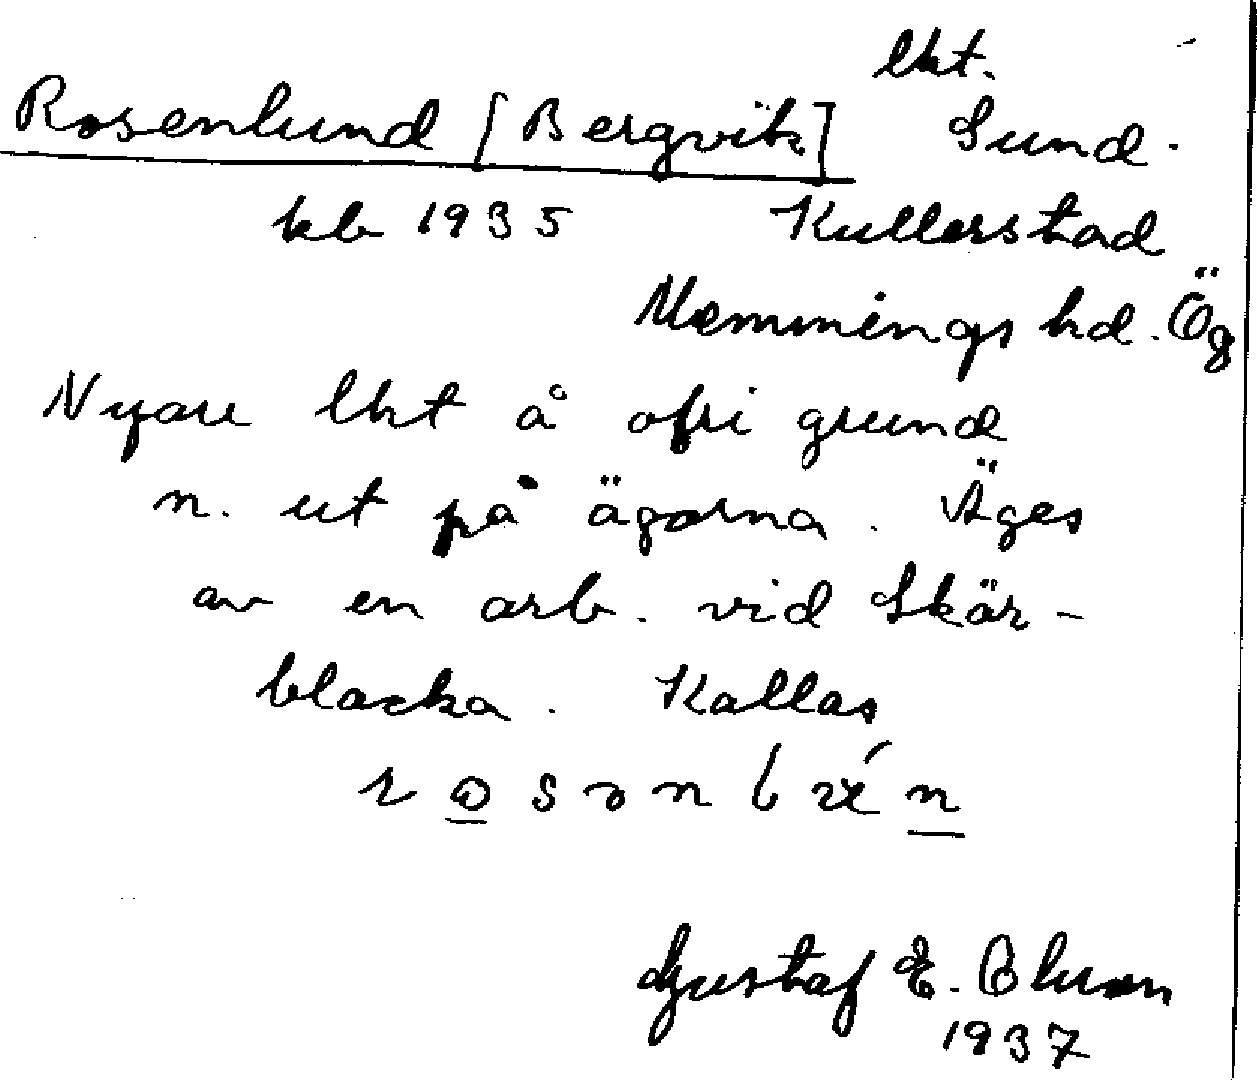 lht.
Rosenlund [Bergvik] Sund.
kb 1935 Kullerstad
Memmings hd. Ög
Nyare lht å ofri grund
n. ut på ägorna. Äges
av en arb. vid Skär-
blacka. Kallas
Gustaf E.
1937